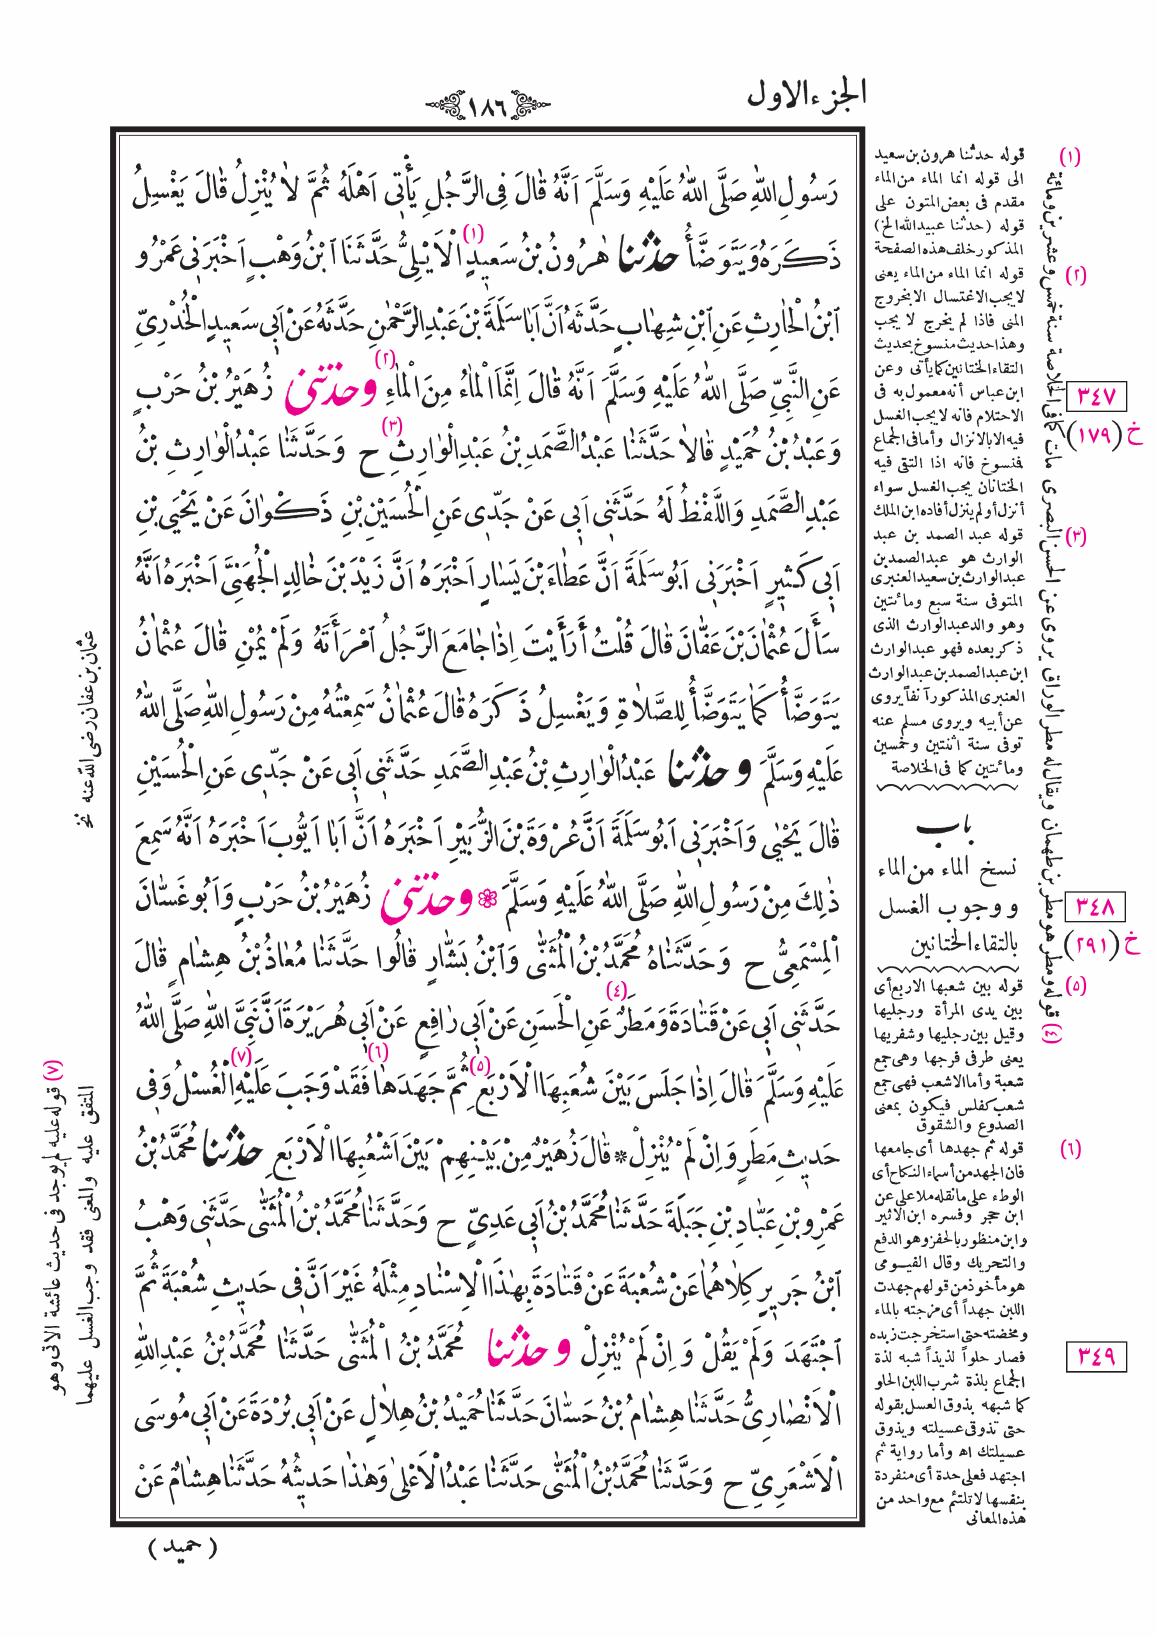 الجزء الاول
١٨٦
رَسُولِ اللّٰهِ صَلَّى اللّٰهُ عَلَيْهِ وَسَلَّمَ اَنَّهُ قَالَ فِى الرَّجُلِ يَأْتِى اَهْلَهُ ثُمَّ لاٰ يُنْزِلُ قٰالَ يَغْسِلُ
ذَكَرَهُ وَيَتَوَضَّأُ حدثنا هٰرُونُ بْنُ سَعيدٍ (١) الْاَيْلِىُّ حَدَّثَنَا ابْنُ وَهْبٍ اَخْبَرَنى عَمْرُو
ابْنُ الْحٰارِثِ عَنِ ابْنِ شِهٰابٍ حَدَّثَهُ اَنَّ اَبَا سَلَمَةَ بْنَ عَبْدِ الرَّحْمٰنِ حَدَّثَهُ عَنْ اَبى سَعيدٍ الْخُدْرِىِّ
عَنِ النَّبِىِّ صَلَّى اللّٰهُ عَلَيْهِ وَسَلَّمَ اَنَّهُ قٰالَ اِنَّمَا الْمٰاءُ مِنَ الْمٰاءِ (٢) وحدثنى زُهَيْرُ بْنُ حَرْبٍ
وَعَبْدُ بْنُ حُمَيْدٍ قٰالاٰ حَدَّثَنٰا عَبْدُ الصَّمَدِ بْنُ عَبْدِ الْوٰارِثِ (٣) ح وَحَدَّثَنٰا عَبْدُ الْوٰارِثِ بْنُ
عَبْدِ الصَّمَدِ وَاللَّفْظُ لَهُ حَدَّثَنى اَبى عَنْ جَدّى عَنِ الْحُسَيْنِ بْنِ ذَكْوٰانَ عَنْ يَحْيَى بْنِ
اَبى كَثيرٍ اَخْبَرَنى اَبُو سَلَمَةَ اَنَّ عَطٰاءَ بْنَ يَسٰارٍ اَخْبَرَهُ اَنَّ زَيْدَ بْنَ خٰالِدٍ الْجُهَنِىَّ اَخْبَرَهُ اَنَّهُ
سَأَلَ عُثْمٰانَ بْنَ عَفّٰانَ قٰالَ قُلْتُ أَرَأَيْتَ اِذٰا جٰامَعَ الرَّجُلُ امْرَأَتَهُ وَلَمْ يُمْنِ قٰالَ عُثْمٰانُ
يَتَوَضَّأُ كَمٰا يَتَوَضَّأُ لِلصَّلاٰةِ وَيَغْسِلُ ذَكَرَهُ قٰالَ عُثْمٰانُ سَمِعْتُهُ مِنْ رَسُولِ اللّٰهِ صَلَّى اللّٰهُ
عَلَيْهِ وَسَلَّمَ وحدثنا عَبْدُ الْوٰارِثِ بْنُ عَبْدِ الصَّمَدِ حَدَّثَنى اَبى عَنْ جَدّى عَنِ الْحُسَيْنِ
قٰالَ يَحْيٰى وَاَخْبَرَنى اَبُو سَلَمَةَ اَنَّ عُرْوَةَ بْنَ الزُّبَيْرِ اَخْبَرَهُ اَنَّ اَبٰا اَيُّوبَ اَخْبَرَهُ اَنَّهُ سَمِعَ
ذٰلِكَ مِنْ رَسُولِ اللّٰهِ صَلَّى اللّٰهُ عَلَيْهِ وَسَلَّمَ ❁ وحدثنى زُهَيْرُ بْنُ حَرْبٍ وَاَبُو غَسّٰانَ
الْمِسْمَعِىُّ ح وَحَدَّثَنٰاهُ مُحَمَّدُ بْنُ الْمُثَنّٰى وَابْنُ بَشّٰارٍ قٰالُوا حَدَّثَنٰا مُعٰاذُ بْنُ هِشٰامٍ قٰالَ
حَدَّثَنى اَبى عَنْ قَتٰادَةَ وَمَطَرٌ (٤) عَنِ الْحَسَنِ عَنْ اَبى رٰافِعٍ عَنْ اَبى هُرَيْرَةَ اَنَّ نَبِىَّ اللّٰهِ صَلَّى اللّٰهُ
عَلَيْهِ وَسَلَّمَ قٰالَ اِذٰا جَلَسَ بَيْنَ شُعَبِهَا الْاَرْبَعِ (٥) ثُمَّ جَهَدَهٰا (٦) فَقَدْ وَجَبَ عَلَيْهِ (٧) الْغُسْلُ وَفى
حَديثِ مَطَرٍ وَاِنْ لَمْ يُنْزِلْ * قٰالَ زُهَيْرٌ مِنْ بَيْنِهِمْ بَيْنَ اَشْعُبِهَا الْاَرْبَعِ حدثنا مُحَمَّدُ بْنُ
عَمْرِو بْنِ عَبّٰادِ بْنِ جَبَلَةَ حَدَّثَنٰا مُحَمَّدُ بْنُ اَبى عَدِىٍّ ح وَحَدَّثَنٰا مُحَمَّدُ بْنُ الْمُثَنّٰى حَدَّثَنى وَهْبُ
ابْنُ جَريرٍ كِلاٰهُمٰا عَنْ شُعْبَةَ عَنْ قَتٰادَةَ بِهٰذَا الْاِسْنٰادِ مِثْلَهُ غَيْرَ اَنَّ فى حَديثِ شُعْبَةَ ثُمَّ
اجْتَهَدَ وَلَمْ يَقُلْ وَاِنْ لَمْ يُنْزِلْ وحدثنا مُحَمَّدُ بْنُ الْمُثَنّٰى حَدَّثَنٰا مُحَمَّدُ بْنُ عَبْدِ اللّٰهِ
الْاَنْصٰارِىُّ حَدَّثَنٰا هِشٰامُ بْنُ حَسّٰانَ حَدَّثَنٰا حُمَيْدُ بْنُ هِلاٰلٍ عَنْ اَبى بُرْدَةَ عَنْ اَبى مُوسَى
الْاَشْعَرِىِّ ح وَحَدَّثَنٰا مُحَمَّدُ بْنُ الْمُثَنّٰى حَدَّثَنٰا عَبْدُ الْاَعْلىٰ وَهٰذٰا حَديثُهُ حَدَّثَنٰا هِشٰامٌ عَنْ
( حميد )
(١) قوله حدثنا هرون بن سعيد
الى قوله انما الماء من الماء
مقدم فى بعض المتون على
قوله (حدثنا عبيدالله الخ)
المذكور خلف هذه الصفحة
(٢) قوله انما الماء من الماء يعنى
لايجب الاغتسال الا بخروج
المنى فاذا لم يخرج لا يجب
وهذا حديث منسوخ بحديث
التقاء الختانين كما يأتى وعن
ابن عباس أنه معمول به فى
الاحتلام فانه لا يجب الغسل
فيه الا بالانزال وأما فى الجماع
فمنسوخ فانه اذا التقى فيه
الختانان يجب الغسل سواء
أنزل أو لم ينزل أفاده ابن الملك
(٣) قوله عبد الصمد بن عبد
الوارث هو عبدالصمد بن
عبدالوارث بن سعيد العنبرى
المتوفى سنة سبع ومائتين
وهو والد عبدالوارث الذى
ذكر بعده فهو عبدالوارث
ابن عبدالصمد بن عبدالوارث
العنبرى المذكور آنفاً يروى
عن أبيه ويروى مسلم عنه
توفى سنة اثنتين وخمسين
ومائتين كما فى الخلاصة
باب
نسخ الماء من الماء
ووجوب الغسل
بالتقاء الختانين
(٥) قوله بين شعبها الاربع أى
بين يدى المرأة ورجليها
وقيل بين رجليها وشفريها
يعنى طرفى فرجها وهى جمع
شعبة وأما الاشعب فهى جمع
شعب كفلس فيكون بمعنى
الصدوع والشقوق
(٦) قوله ثم جهدها أى جامعها
فان الجهد من أسماء النكاح أى
الوطء على ما نقله ملا على عن
ابن حجر وفسره ابن الاثير
وابن منظور بالحفز وهو الدفع
والتحريك وقال الفيومى
هو مأخوذ من قولهم جهدت
اللبن جهداً أى مزجته بالماء
ومخضته حتى استخرجت زبده
فصار حلواً لذيذاً شبه لذة
الجماع بلذة شرب اللبن الحلو
كما شبهه بذوق العسل بقوله
حتى تذوقى عسيلته ويذوق
عسيلتك اه وأما رواية ثم
اجتهد فعلى حدة أى منفردة
بنفسها لا تلتئم مع واحد من
هذه المعانى
(٤) قوله ومطر هو مطر بن طهمان ويقال له مطر الوراق يروى عن الحسن البصرى مات كما فى الخلاصة سنة خمس وعشرين ومائة
٣٤٧
خ (١٧٩)
٣٤٨
خ (٢٩١)
٣٤٩
عثمان بن عفان رضى الله عنه نخ
(٧) قوله عليه لم يوجد فى حديث عائشة الآتى وهو
المتفق عليه والمعنى فقد وجب الغسل عليهما